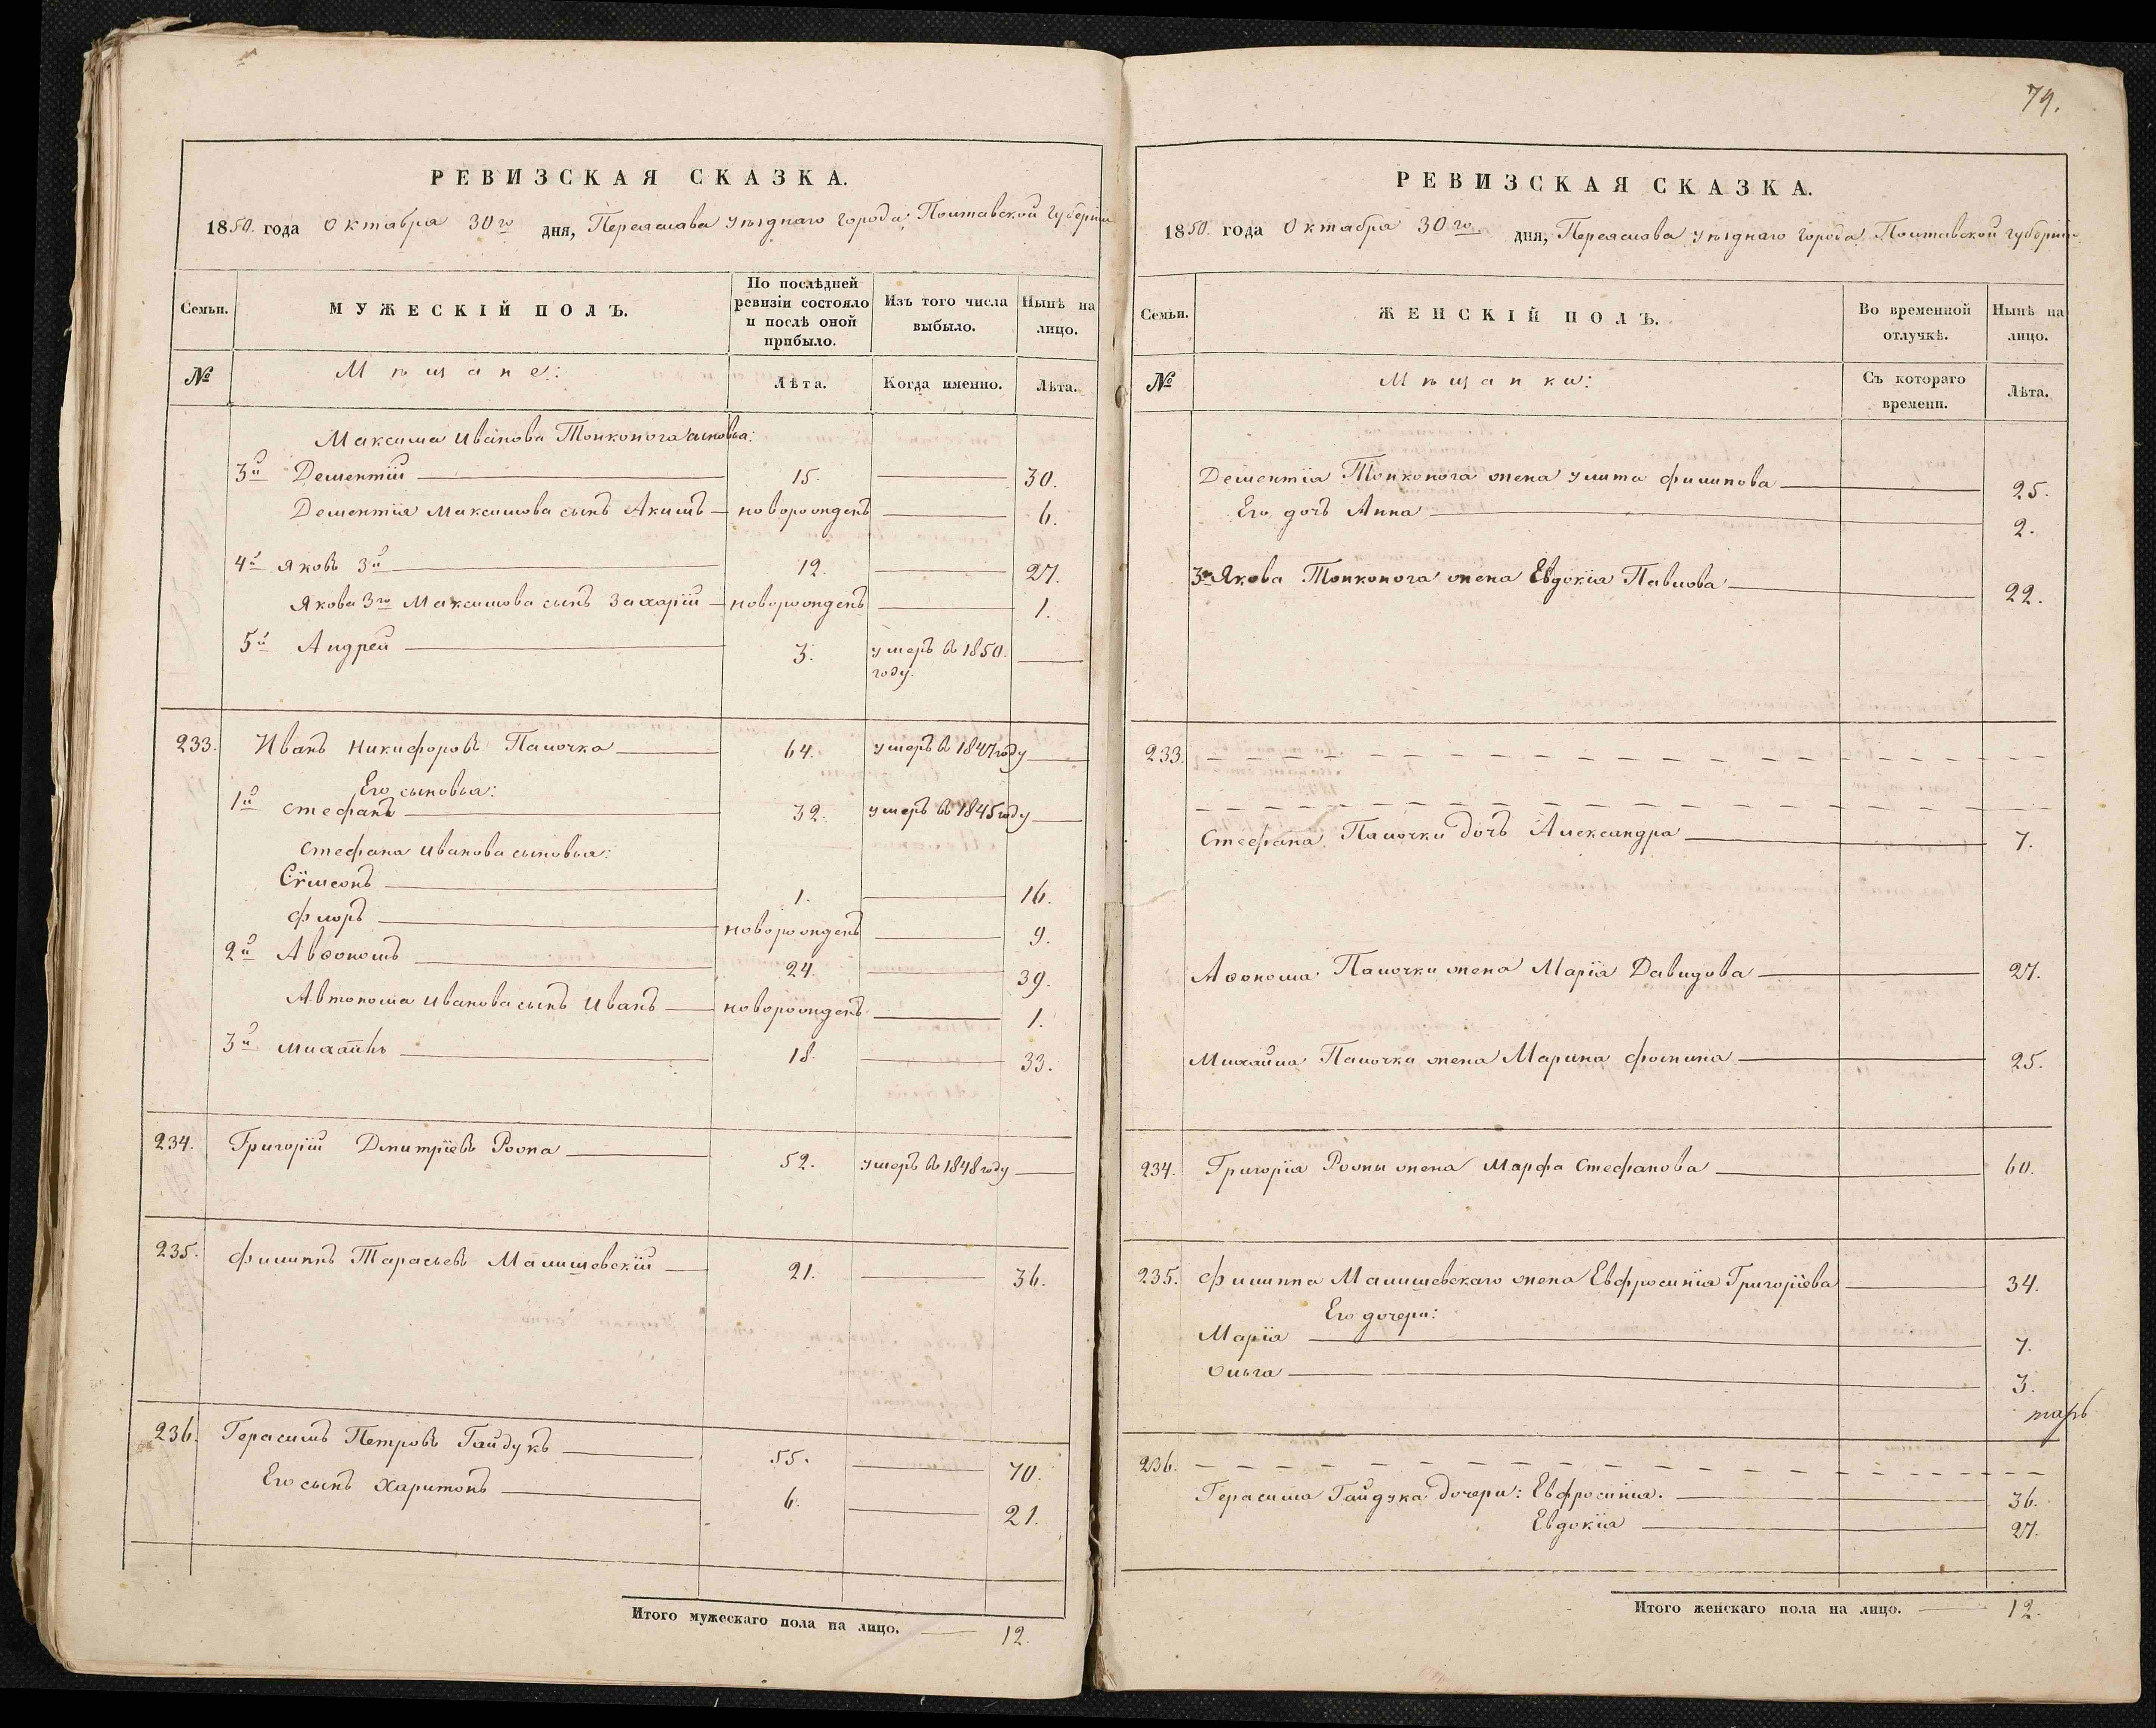 79.
РЕВИЗСКАЯ СКАЗКА.
1850. года Октября 30го дня, Переяслава уѣзднаго города, Полтавской губерніи
Семьи.
МУЖЕСКІЙ ПОЛЪ.
По послѣдней ревизіи состояло и послѣ оной прибыло.
Изъ того числа выбыло.
Нынѣ на лицо.
№
Мѣщане:
Лѣта.
Когда именно.
Лѣта.
Максима Иванова Тонконога сыновья:
3й Дементій 15. 30.
Дементія Максимова сынъ Акимъ новорожденъ 6.
4й Яковъ 3й 12. 27.
Якова 3го Максимова сынъ Захарій новорожденъ 1.
5й Андрей 3. умеръ въ 1850. году.
233. Иванъ Никифоровъ Палочка 64. умеръ въ 1847 году
Его сыновья:
1й Стефанъ 32. умеръ въ 1845 году
Стефана Иванова сыновья:
Сѵмеонъ 1. 16.
Флоръ новорожденъ 9.
2й Авѳономъ 24. 39.
Автонома Иванова сынъ Иванъ новорожденъ 1.
3й Михаилъ 18. 33.
234. Григорій Дмитріевъ Рожна 52. умеръ въ 1848 году
235. Филиппъ Тарасьевъ Малишевскій 21. 36.
236. Герасимъ Петровъ Гайдукъ 55. 70.
Его сынъ Харитонъ 6. 21.
Итого мужескаго пола на лицо. 12.
РЕВИЗСКАЯ СКАЗКА.
1850. года Октября 30го дня, Переяслава уѣзднаго города, Полтавской губерніи
Семьи.
ЖЕНСКІЙ ПОЛЪ.
Во временной отлучкѣ.
Нынѣ на лицо.
№
Мѣщанки:
Съ котораго времени.
Лѣта.
Дементія Тонконога жена Улита Филипова 25.
Его дочь Анна 2.
3го Якова Тонконога жена Евдокія Павлова 22.
233.
Стефана Палочки дочь Александра 7.
Авѳонома Палочки жена Марія Давидова 27.
Михаила Палочки жена Марина Фомина 25.
234. Григорія Рожны жена Марфа Стефанова 60.
235. Филиппа Малишевскаго жена Евфросинія Григоріева 34.
Его дочери:
Марія 7.
Ольга 3.
236.
Герасима Гайдука дочери: Евфросинія. 36.
Евдокія 27.
Итого женскаго пола на лицо. 12.